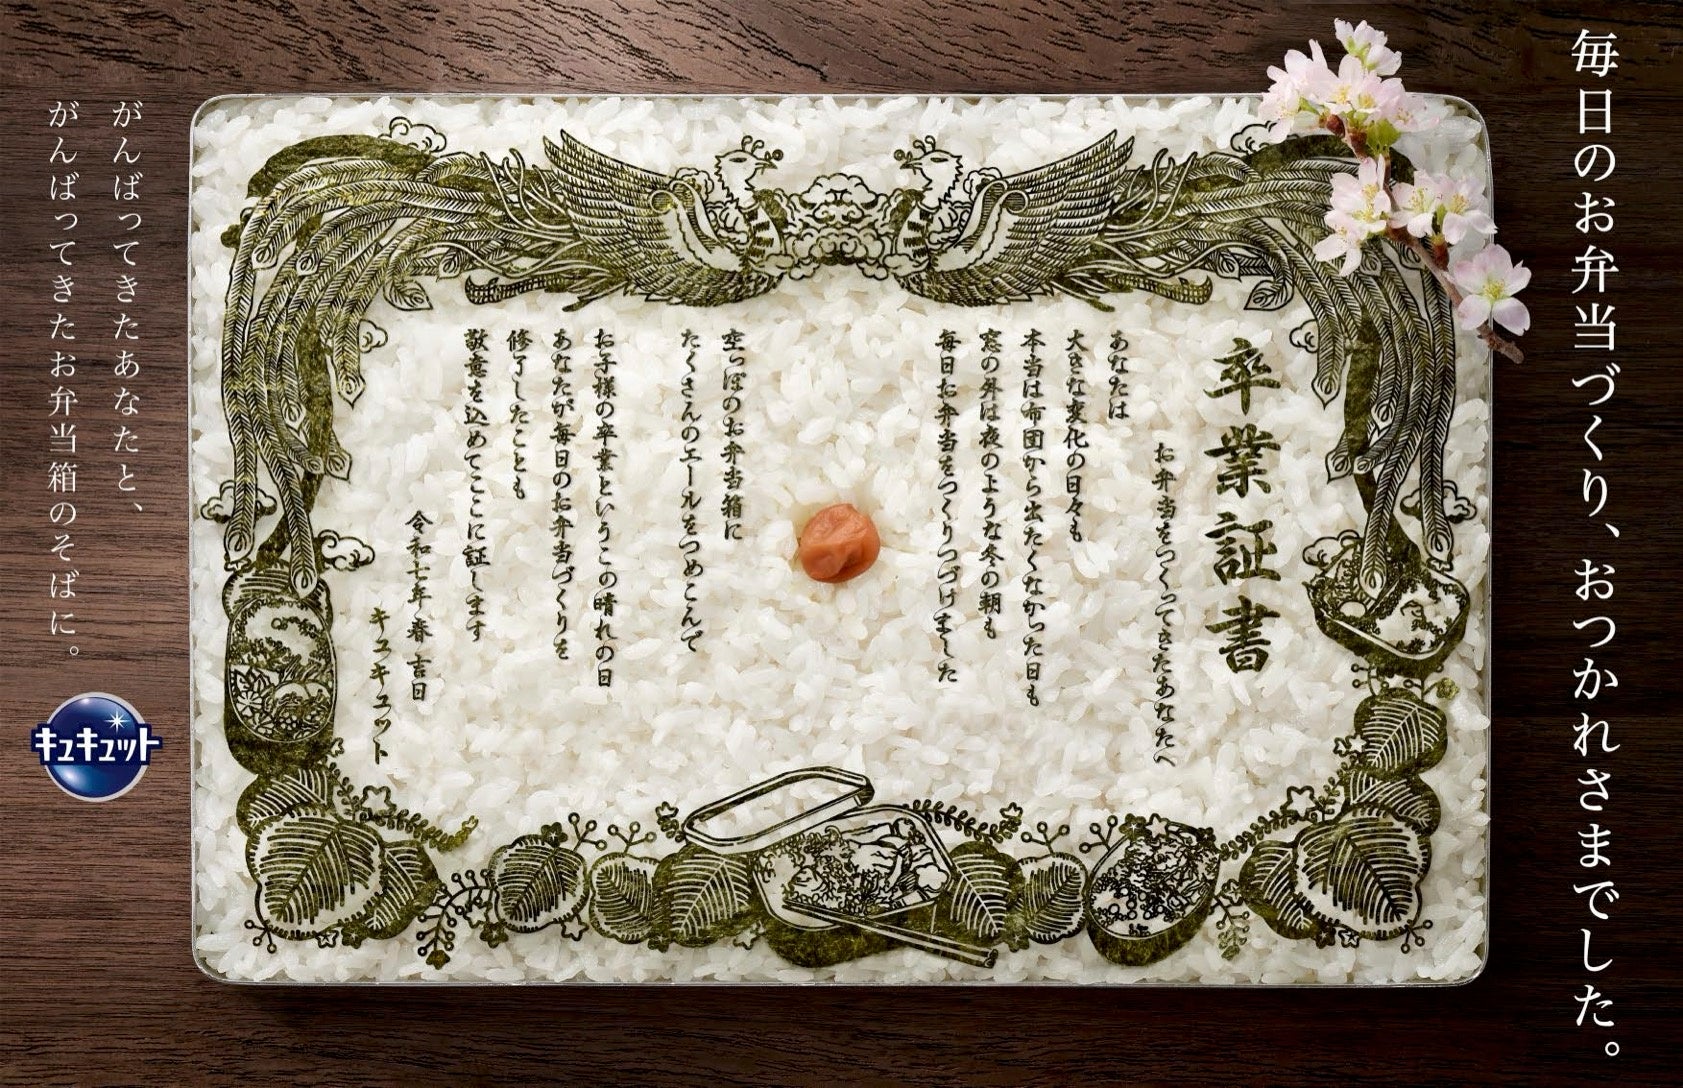 毎日のお弁当づくり、おつかれさまでした。
卒業証書
お弁当をつくってきたあなたへ
あなたは
大きな変化の日々も
本当は布団から出たくなかった日も
窓の外は夜のような冬の朝も
毎日お弁当をつくりつづけました
空っぽのお弁当箱に
たくさんのエールをつめこんで
お子様の卒業というこの晴れの日
あなたが毎日のお弁当づくりを
修了したことも
敬意を込めてここに証します
令和七年春 吉日
キュキュット
がんばってきたあなたと、
がんばってきたお弁当箱のそばに。
キュキュット